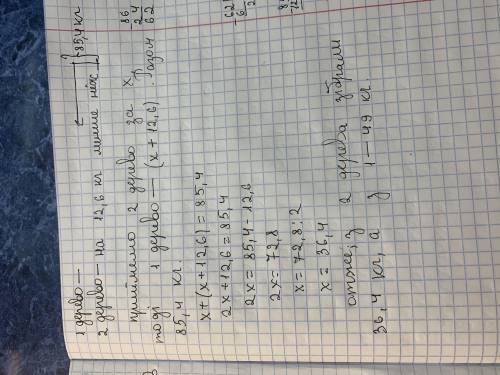 1 дерево —
2 дерево — на 12,6 кг менше ніж 85,4 кг
приймемо 2 дерево за x
тоді 1 дерево — (x + 12,6). Разом
85,4 кг.
x + (x + 12,6) = 85,4
2x + 12,6 = 85,4
2x = 85,4 - 12,6
2x = 72,8
x = 72,8 : 2
x = 36,4
отже, з 2 дерева зібрали
36,4 кг, а з 1 — 49 кг.
86
24
62